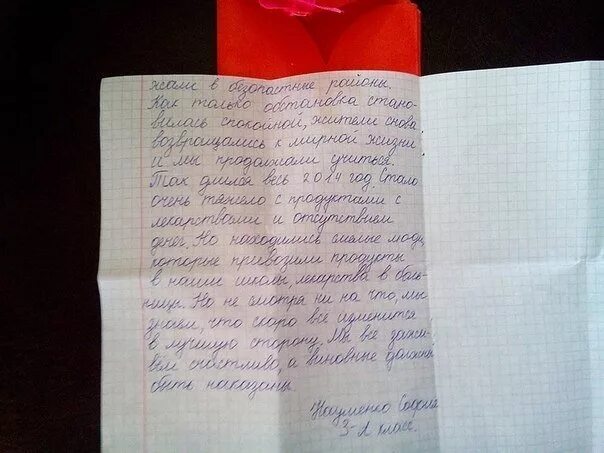 жали в безопастные районы.
Как только обстановка стано-
вилась спокойной, жители снова
возвращались к мирной жизни
и мы продолжали учиться.
Так длился весь 2014 год. Стало
очень тяжело с продуктами с
лекарствами и отсутствием
денег. Но находились смелые люди,
которые привозили продукты
в наши школы, лекарства в боль-
ницы. Но не смотря ни на что, мы
знаем, что скоро всё изменится
в лучшую сторону. Мы все зажи-
вём счастливо, а виновные должны
быть наказаны.
Науменко София
3-А класс.